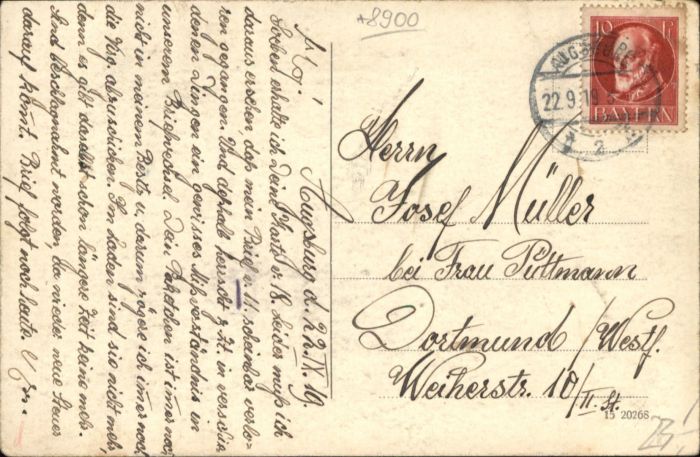 *8900
10 Pf
BAYERN
AUGSBURG
22.9.19
* 2
Herrn
Josef Müller
bei Frau Püttmann
Dortmund / Westf.
Weiherstr. 10/II. St.
15 20268
Augsburg d. 22.IX.19.
Soeben erhalte ich Deine Karte v. 18. Leider muß ich
daraus ersehen daß mein Brief v. 11. scheinbar verlo-
ren gegangen. Und deshalb herrscht z. Zt. in verschie
denen Dingen ein gewisses Mißverständnis in
unserem Briefwechsel. Das Päckchen ist immer noch
nicht in meinem Besitz u. darum zögere ich immer noch
die Zig. abzuschicken. Im Laden sind sie nicht mehr,
denn es gibt daselbst schon längere Zeit keine mehr.
Sind beschlagnahmt worden, da wieder neue Steuer
darauf kommt. Brief folgt noch heute.